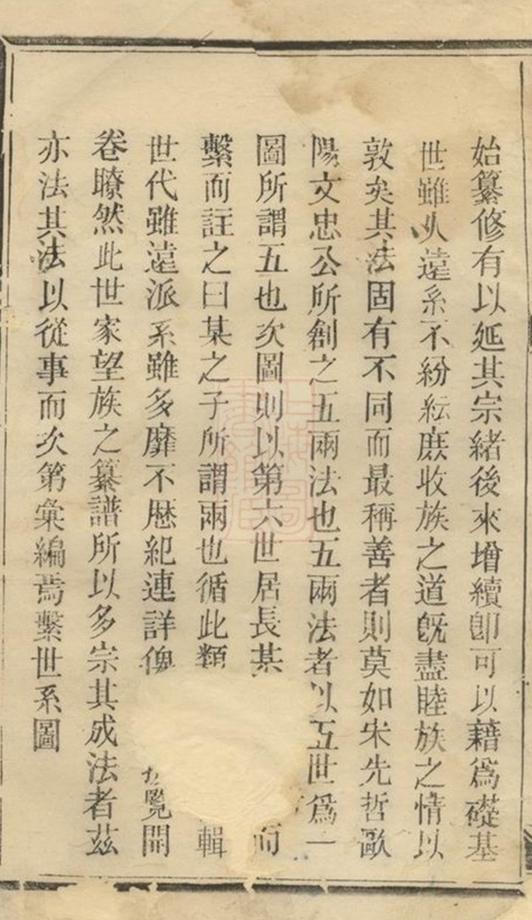 始纂修有以延其宗緒後來增續卽可以藉爲礎基
世雖久遠系不紛紜庶收族之道旣盡睦族之情以
敦矣其法固有不同而最稱善者則莫如宋先哲歐
陽文忠公所創之五兩法也五兩法者以五世爲一
圖所謂五也次圖則以第六世居長某而
繫而註之曰某之子所謂兩也循此類輯
世代雖遠派系雖多靡不歷紀連詳俾覽開
卷瞭然此世家望族之纂譜所以多宗其成法者茲
亦法其法以從事而次第彙編焉繫世系圖